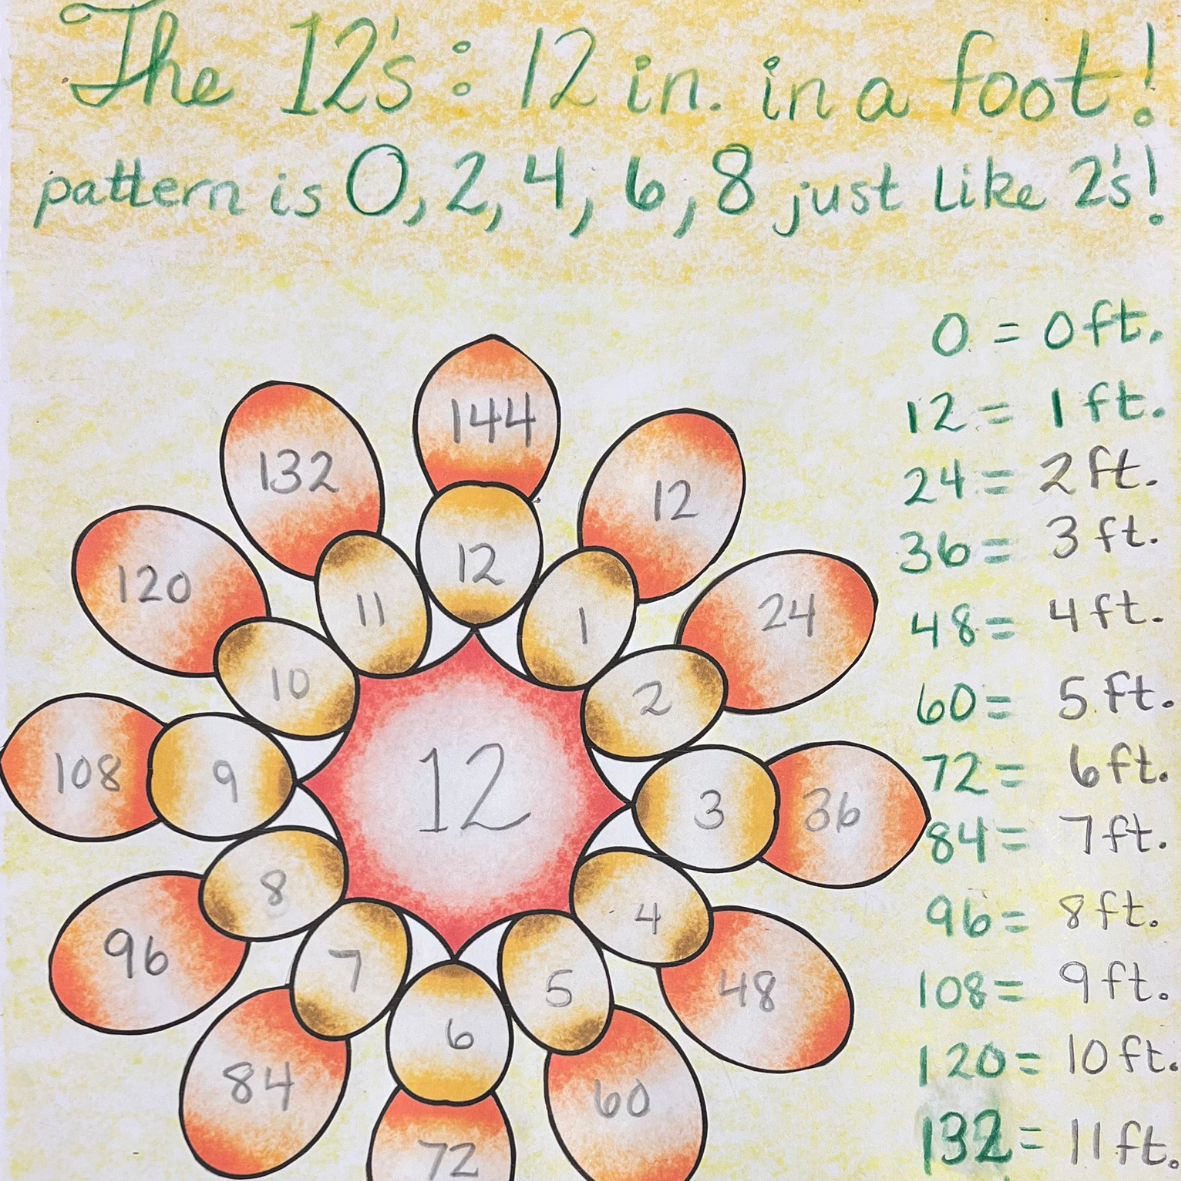 The 12's: 12 in. in a foot!
pattern is 0, 2, 4, 6, 8 just like 2's!
0 = 0 ft.
12 = 1 ft.
24 = 2 ft.
36 = 3 ft.
48 = 4 ft.
60 = 5 ft.
72 = 6 ft.
84 = 7 ft.
96 = 8 ft.
108 = 9 ft.
120 = 10 ft.
132 = 11 ft.
144
132
12
12
120
11
1
24
10
2
108
9
12
3
36
8
4
96
7
5
48
6
84
60
72